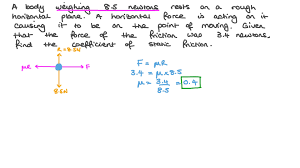 A body weighing 8.5 newtons rests on a rough
horizontal plane. A horizontal force is acting on it
causing it to be on the point of moving. Given
that the force of the friction was 3.4 newtons,
find the coefficient of static friction.
R = 8.5N
μR F
8.5N
F = μR
3.4 = μ × 8.5
μ = 3.4 / 8.5 = 0.4